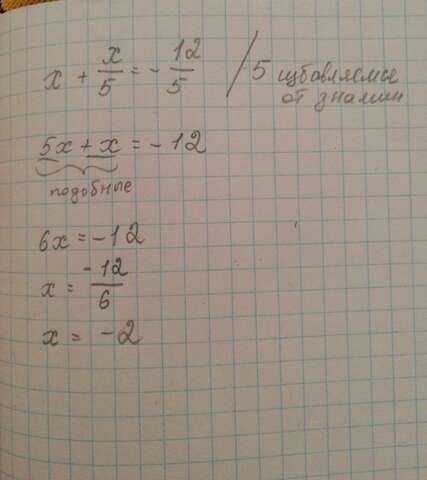 x + x/5 = - 12/5 / ·5 избавляемся от знамен
5x + x = -12
подобные
6x = -12
x = -12/6
x = -2